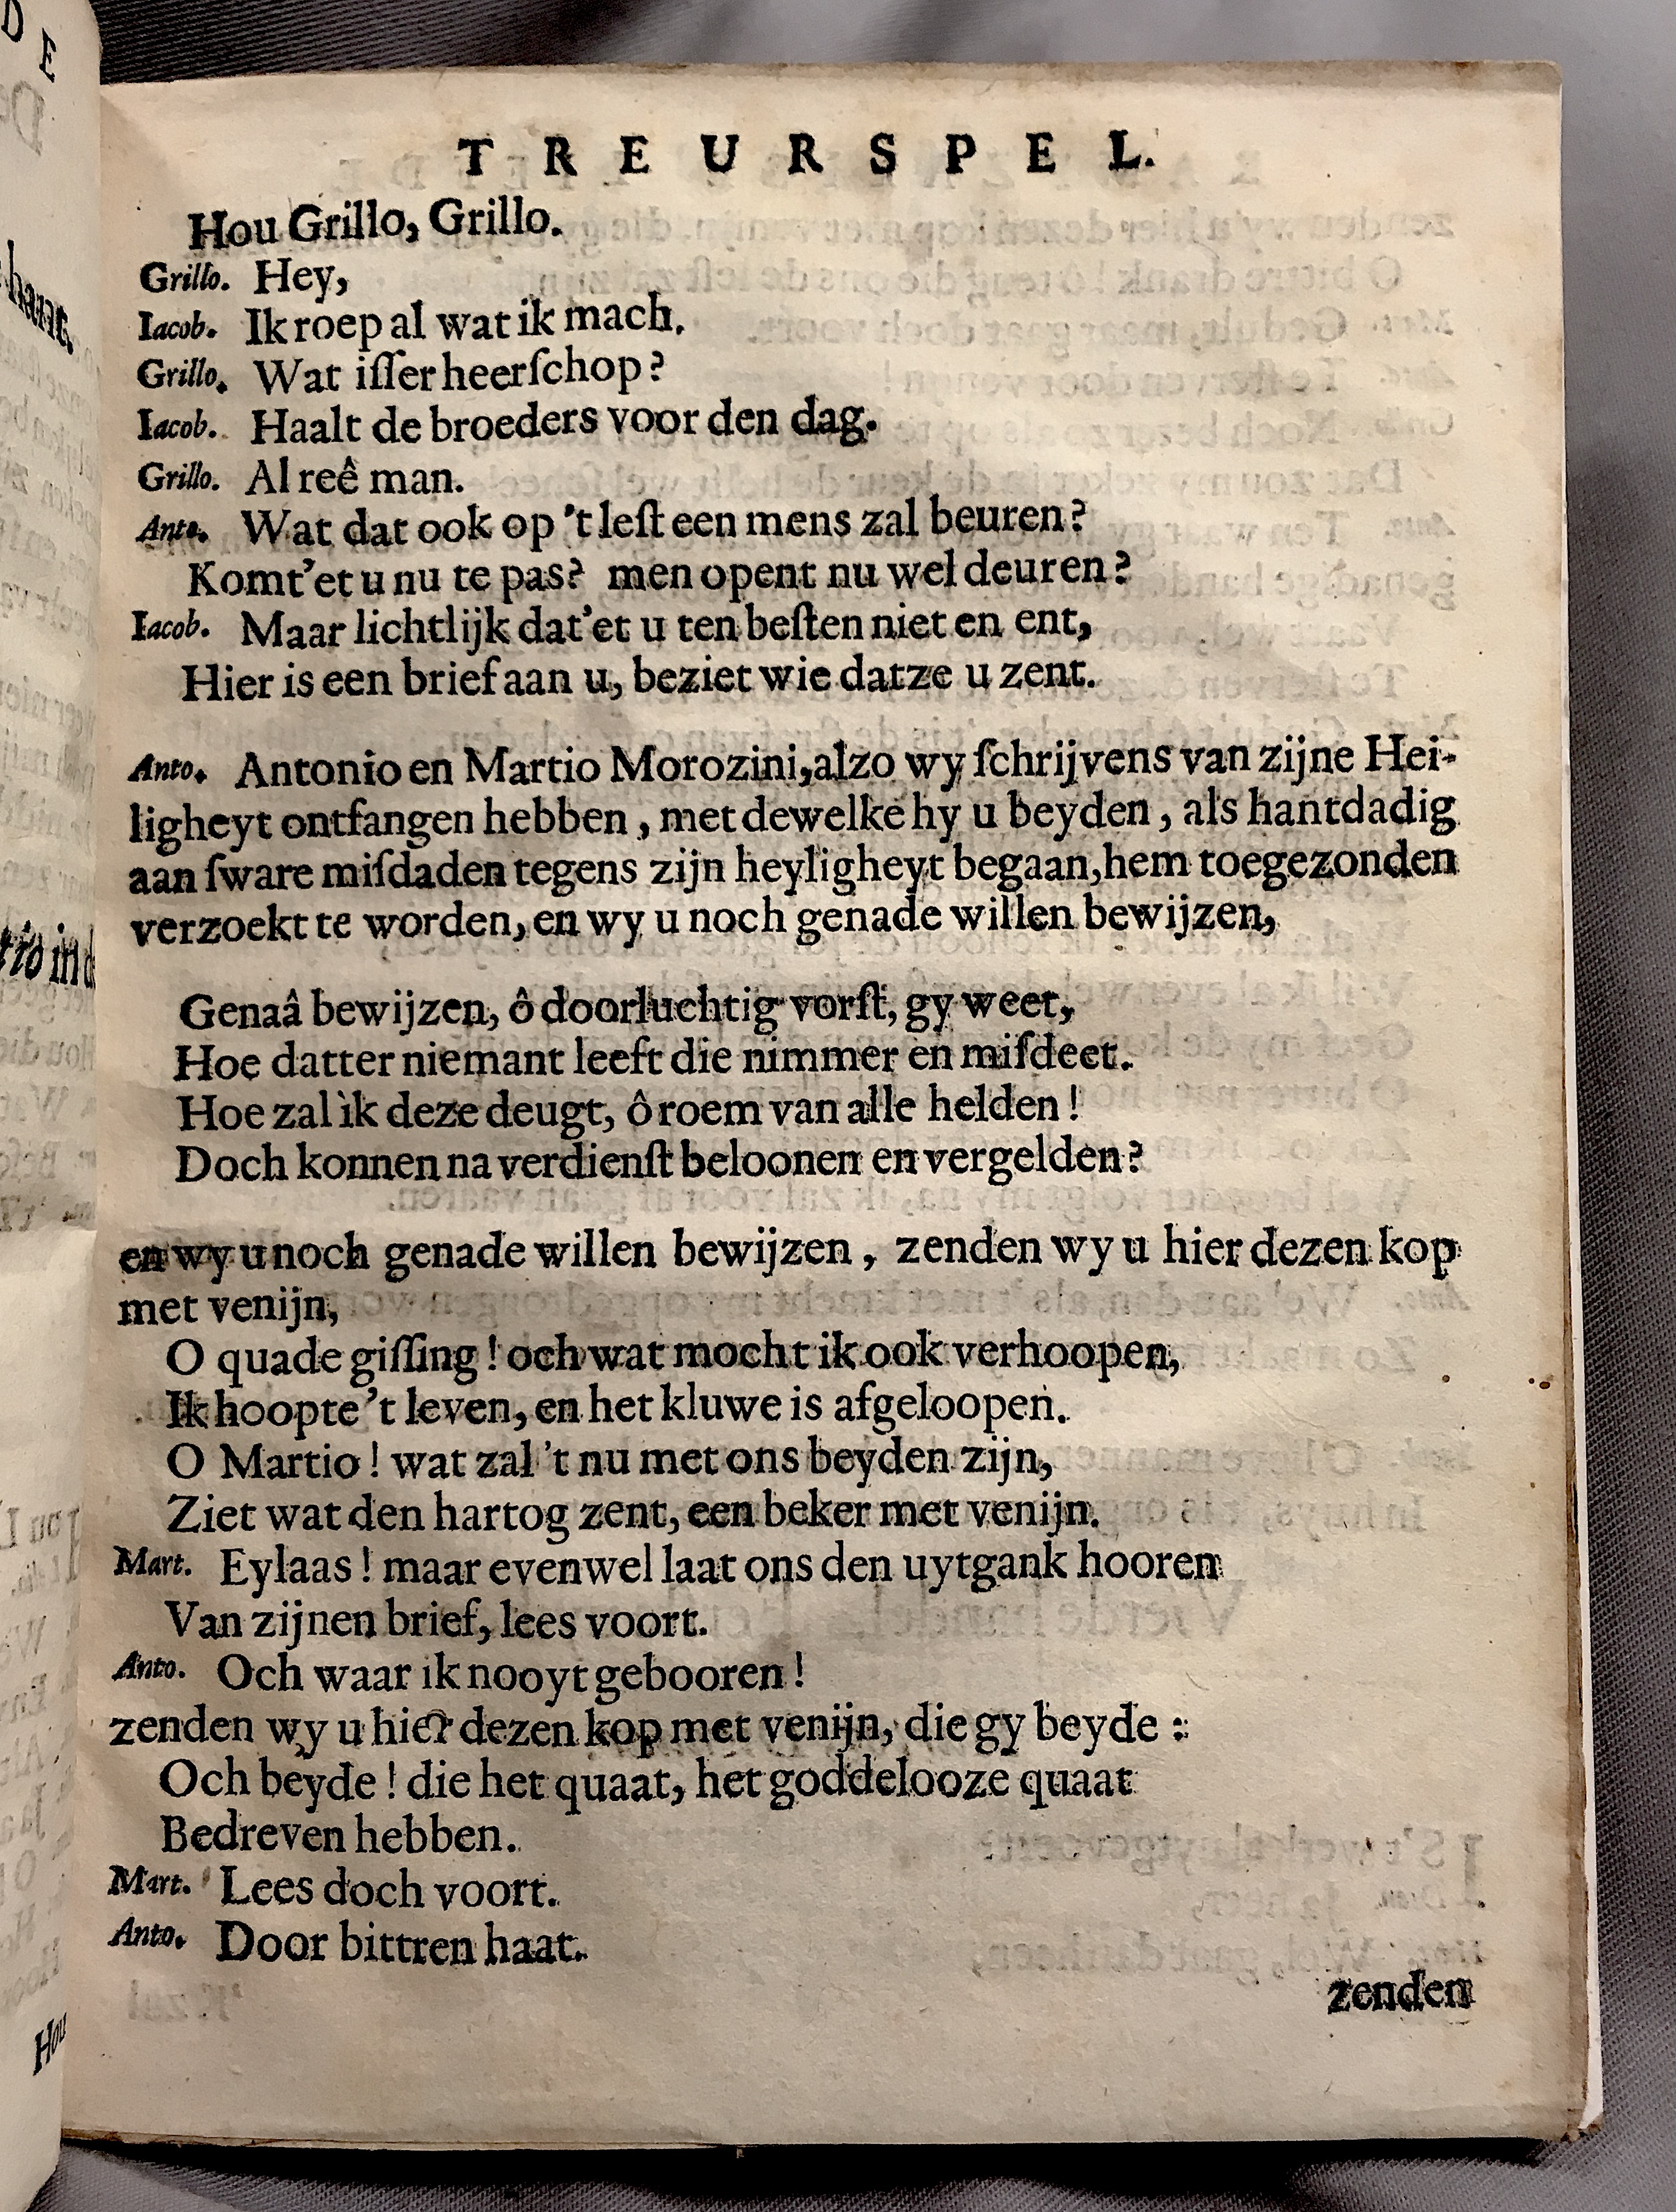 TREURSPEL.
Hou Grillo, Grillo.
Grillo. Hey,
Iacob. Ik roep al wat ik mach.
Grillo. Wat iſſer heerſchop?
Iacob. Haalt de broeders voor den dag.
Grillo. Al reê man.
Anto. Wat dat ook op 't leſt een mens zal beuren?
Komt'et u nu te pas? men opent nu wel deuren?
Iacob. Maar lichtlijk dat'et u ten beſten niet en ent,
Hier is een brief aan u, beziet wie datze u zent.
Anto. Antonio en Martio Morozini, alzo wy ſchrijvens van zijne Hei-
ligheyt ontfangen hebben, met dewelke hy u beyden, als hantdadig
aan ſware miſdaden tegens zijn heyligheyt begaan, hem toegezonden
verzoekt te worden, en wy u noch genade willen bewijzen,
Genaâ bewijzen, ô doorluchtig vorſt, gy weet,
Hoe datter niemant leeft die nimmer en miſdeet.
Hoe zal ik deze deugt, ô roem van alle helden!
Doch konnen na verdienſt beloonen en vergelden?
en wy u noch genade willen bewijzen, zenden wy u hier dezen kop
met venijn,
O quade giſſing! och wat mocht ik ook verhoopen,
Ik hoopte 't leven, en het kluwe is afgeloopen.
O Martio! wat zal 't nu met ons beyden zijn,
Ziet wat den hartog zent, een beker met venijn.
Mart. Eylaas! maar evenwel laat ons den uytgank hooren
Van zijnen brief, lees voort.
Anto. Och waar ik nooyt gebooren!
zenden wy u hier dezen kop met venijn, die gy beyde:
Och beyde! die het quaat, het goddelooze quaat
Bedreven hebben.
Mart. Lees doch voort.
Anto. Door bittren haat.
zenden